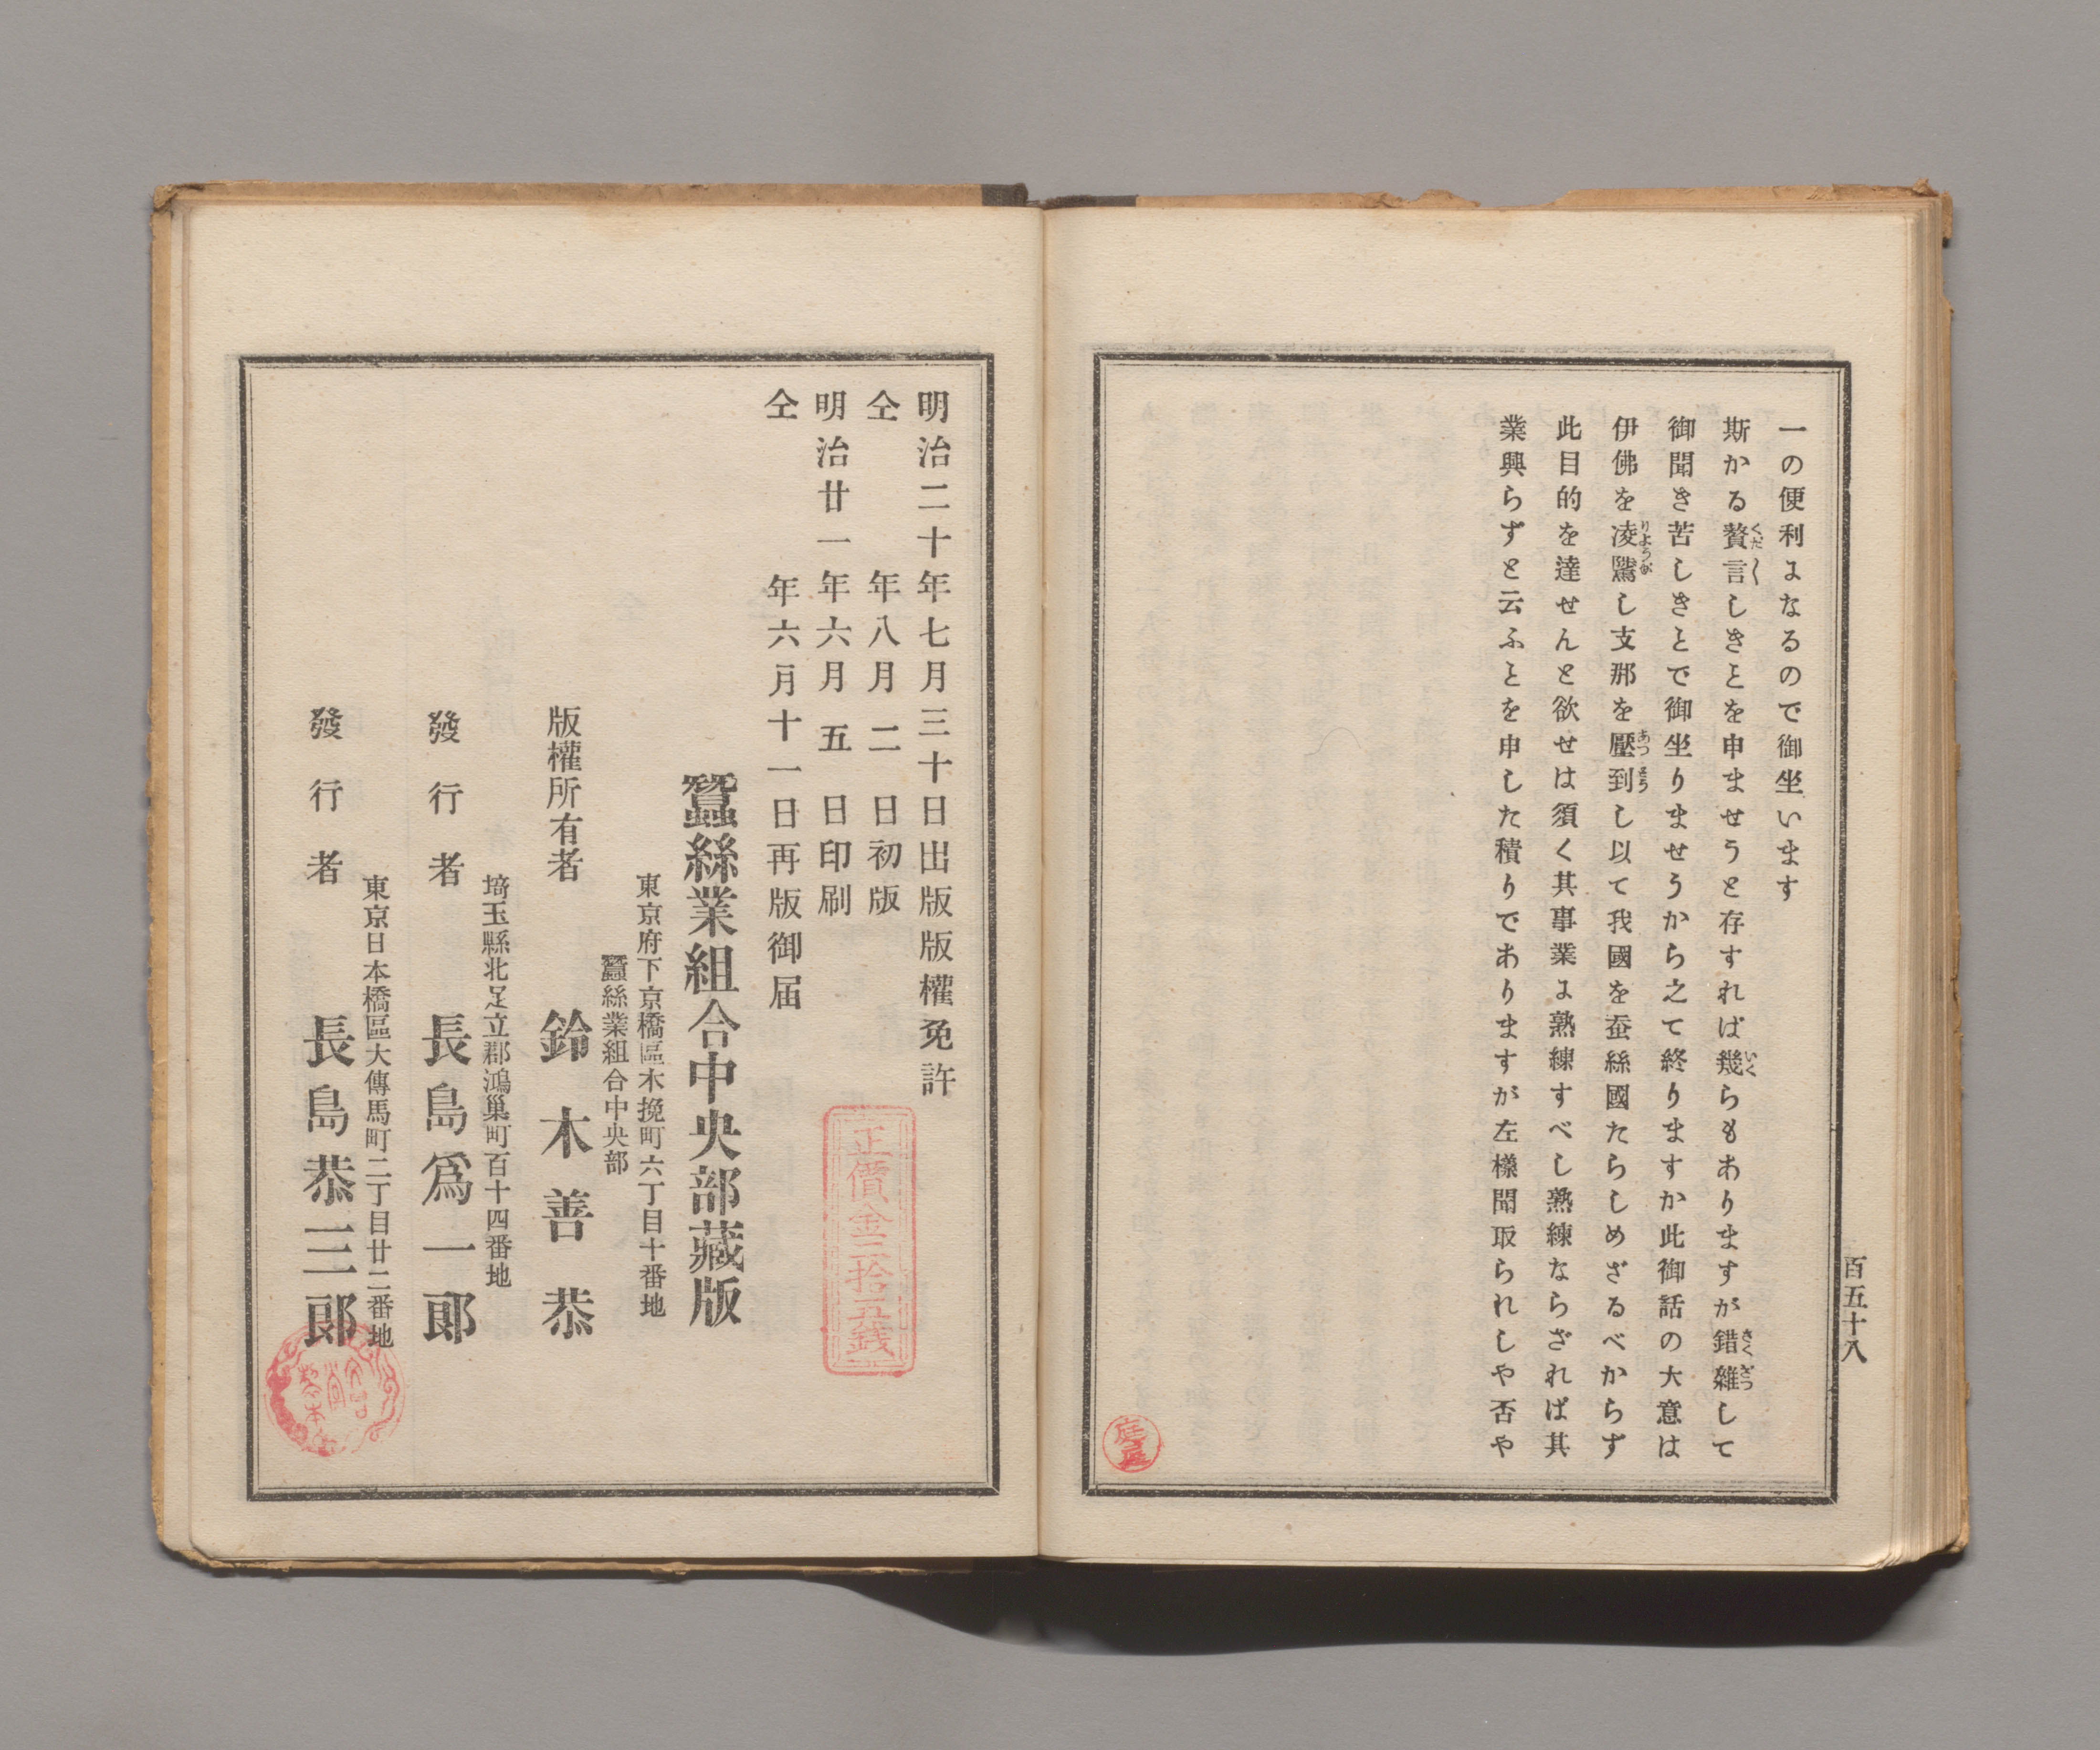 一の便利になるので御坐います
斯かる贅言しきことを申ませうと存すれば幾らもありますが錯雜して
御聞き苦しきとで御坐りませうから之て終りますか此御話の大意は
伊佛を凌駕し支那を壓到し以て我國を蚕絲國たらしめざるべからず
此目的を達せんと欲せは須く其事業に熟練すべし熟練ならざれば其
業興らずと云ふとを申した積りでありますが左樣聞取られしや否や
百五十八
明治二十年七月三十日出版版權免許
仝年八月二日初版
明治廿一年六月五日印刷
仝年六月十一日再版御届
正價金三拾五銭
蠶絲業組合中央部藏版
東京府下京橋區木挽町六丁目十番地
蠶絲業組合中央部
版權所有者 鈴木善恭
埼玉縣北足立郡鴻巢町百十四番地
發行者 長島爲一郎
東京日本橋區大傳馬町二丁目廿二番地
發行者 長島恭三郎